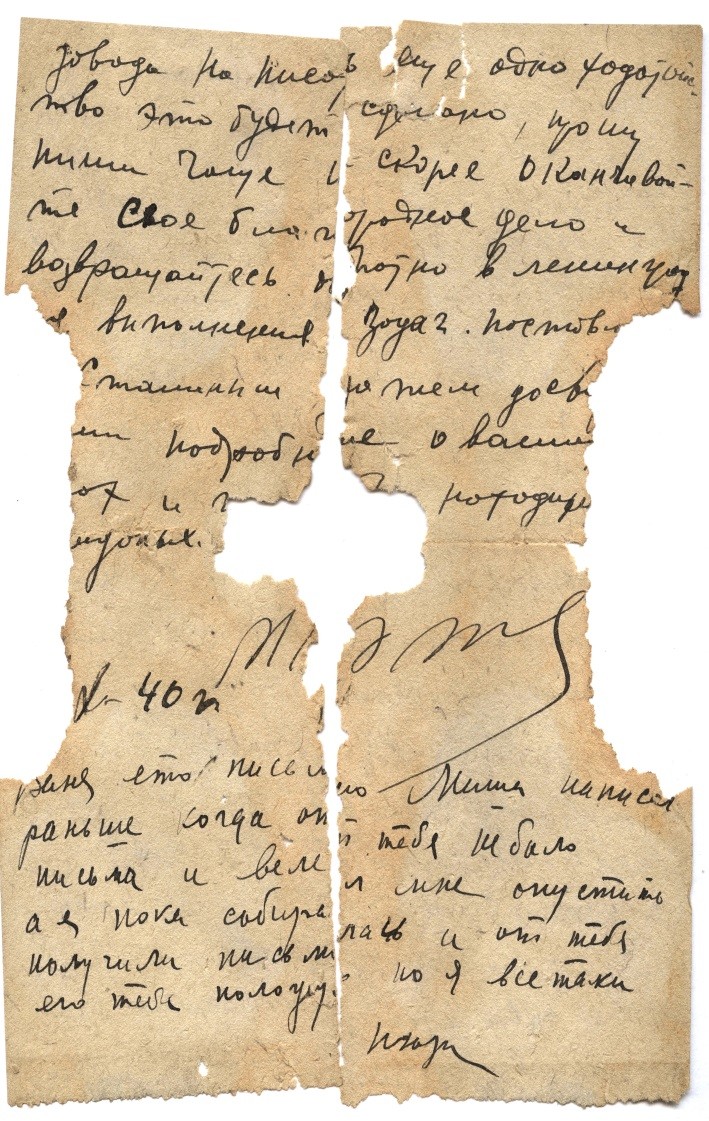 довода написать еще одно ходатай-
ство это будет сделано, прошу
пиши чаще и скорее оканчивай-
те свое благородное дело и
возвращайтесь обратно в ленинград
выполнения задач. поставл
Сталиним
подробн о ваши
ох и находи
40 г
ваня ето письмо Миша написал
раньше когда от тебя небыло
письма и велел мне опустить
а я пока собиралась и от тебя
получили письмо но я все таки
его тебе положу.